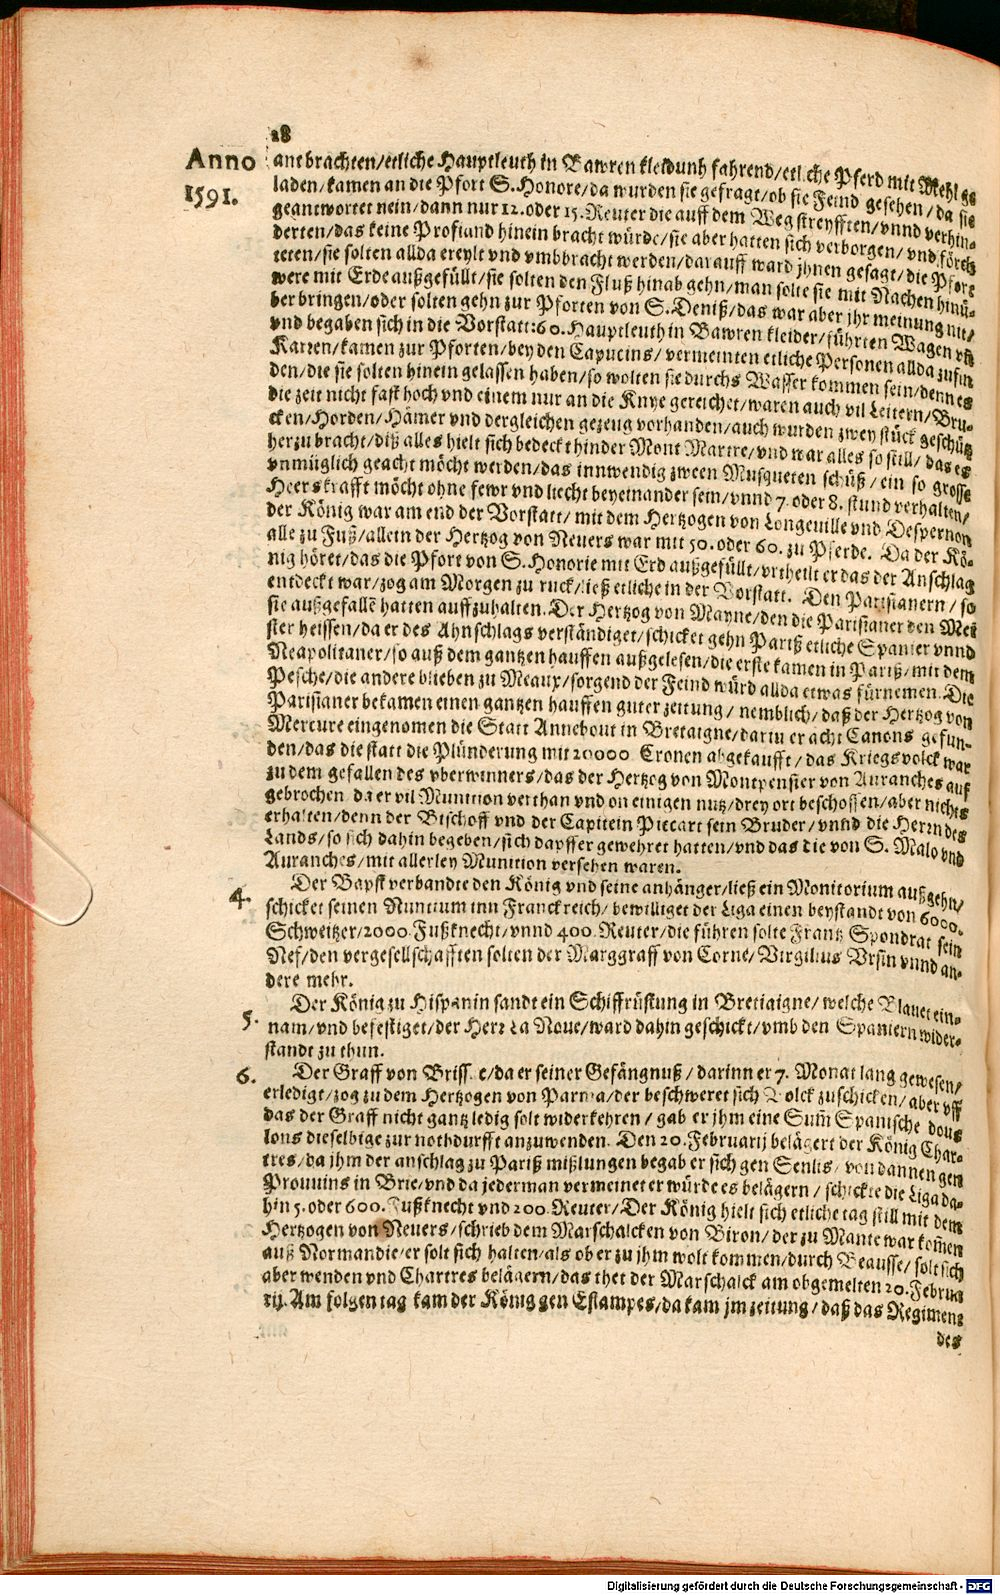 28
Anno
1591.
ant brachten/etliche Hauptleuth in Bawren kleidunh fahrend/etliche Pferd mit Mehl ge
laden/kamen an die Pfort S. Honore/da wurden sie gefragt/ob sie Feind gesehen/da sie
geantwortet nein/dann nur 12. oder 15. Reuter die auff dem Weg streyfften/vnnd verhin-
derten/das keine Profiand hinein bracht würde/sie aber hatten sich verborgen/vnd förch
teten/sie solten allda ereylt vnd vmbbracht werden/darauff ward jhnen gesagt/die Pfort
were mit Erde außgefüllt/sie solten den Fluß hinab gehn/man solte sie mit Nachen hinü-
ber bringen/oder solten gehn zur Pforten von S. Deniß/das war aber jhr meinung nit/
vnd begaben sich in die Vorstatt: 60. Hauptleuth in Bawren kleider/führten Wagen vñ
Karren/kamen zur Pforten/bey den Capucins/vermeinten etliche Personen allda zufin
den/die sie solten hinein gelassen haben/so wolten sie durchs Wasser kommen sein/denn es
die zeit nicht fast hoch vnd einem nur an die Knye gereichet/waren auch vil Leitern/Bru-
cken/Horden/Hämer vnd dergleichen gezeug vorhanden/auch wurden zwey stück geschütz
herzu bracht/diß alles hielt sich bedeckt hinder Mont Martre/vnd war alles so still/das es
vnmüglich geacht möcht werden/das innwendig zween Musqueten schüß/ein so grosse
Heerskrafft möcht ohne fewr vnd liecht beyeinander sein/vnnd 7. oder 8. stund verhalten/
der König war am end der Vorstatt/mit dem Hertzogen von Longeuille vnd Despernon
alle zu Fuß/allein der Hertzog von Neuers war mit 50. oder 60. zu Pferde. Da der Kö-
nig höret/das die Pfort von S. Honorie mit Erd außgefüllt/vrtheilt er das der Anschlag
entdeckt war/zog am Morgen zu ruck/ließ etliche in der Vorstatt. Den Parisianern/so
sie außgefallē hatten auffzuhalten. Der Hertzog von Mayne/den die Parisianer den Mei
ster heissen/da er des Ahnschlags verständiget/schicket gehn Pariß etliche Spanier vnnd
Neapolitaner/so auß dem gantzen hauffen außgelesen/die erste kamen in Pariß/mit dem
Pesche/die andere blieben zu Meaux/sorgend der Feind würd allda etwas fürnemen. Die
Parisianer bekamen einen gantzen hauffen guter zeitung/nemblich/daß der Hertzog von
Mercure eingenomen die Statt Annebout in Bretaigne/darin er acht Canons gefun-
den/das die statt die Plünderung mit 20000. Cronen abgekaufft/das Kriegsvolck war
zu dem gefallen des vberwinners/das der Hertzog von Montpensier von Auranches auf
gebrochen da er vil Munition verthan vnd on einigen nutz/drey ort beschossen/aber nichts
erhalten/denn der Bischoff vnd der Capitein Piccart sein Bruder/vnnd die Herrn des
Lands/so sich dahin begeben/sich dapffer gewehret hatten/vnd das die von S. Malo vnd
Auranches/mit allerley Munition versehen waren.
4. Der Bapst verbandte den König vnd seine anhänger/ließ ein Monitorium außgehn/
schicket seinen Nuntium inn Franckreich/bewilliget der Liga einen beystandt von 6000.
Schweitzer/2000. Fußknecht/vnnd 400. Reuter/die führen solte Frantz Spondrat sein
Nef/den vergesellschafften solten der Marggraff von Corne/Virgilius Vrsin vnnd an-
dere mehr.
5. Der König zu Hispanin sandt ein Schiffrüstung in Bretiaigne/welche Blauet ein-
nam/vnd befestiget/der Herr La Noue/ward dahin geschickt/vmb den Spaniern wider-
standt zu thun.
6. Der Graff von Briss e/da er seiner Gefängnuß/darinn er 7. Monat lang gewesen/
erledigt/zog zu dem Hertzogen von Parma/der beschweret sich Volck zuschicken/aber vff
das der Graff nicht gantz ledig solt widerkehren/gab er jhm eine Sum̄ Spanische doub
lons dieselbige zur nothdurfft anzuwenden. Den 20. Februarij belägert der König Char-
tres/da jhm der anschlag zu Pariß mißlungen begab er sich gen Senlis/von dannen gen
Prouins in Brie/vnd da jederman vermeinet er würde es belägern/schickte die Liga da-
hin 5. oder 600. Fußknecht vnd 200. Reuter/Der König hielt sich etliche tag still mit dem
Hertzogen von Neuers/schrieb dem Marschalcken von Biron/der zu Mante war kom̄en
auß Normandie/er solt sich halten/als ob er zu jhm wolt kommen/durch Beausse/solt sich
aber wenden vnd Chartres belägern/das thet der Marschalck am obgemelten 20. Februa
rij. Am folgen tag kam der König gen Estampes/da kam jm zeitung/daß das Regiment
des
Digitalisierung gefördert durch die Deutsche Forschungsgemeinschaft - DFG